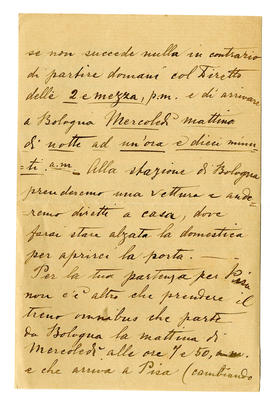 se non succede nulla in contrario
di partire domani col Diretto
delle 2 e mezza, p.m. e di arrivare
a Bologna Mercoledì mattina
di notte ad un'ora e dieci minu-
ti a.m. Alla stazione di Bologna
prenderemo una vettura e ande-
remo diretti a casa, dove
farai stare alzata la domestica
per aprirci la porta. —
Per la tua partenza per
non c'è altro che prendere il
treno omnibus che parte
da Bologna la mattina di
Mercoledì alle ore 7 e 50,
e che arriva a Pisa (cambiando